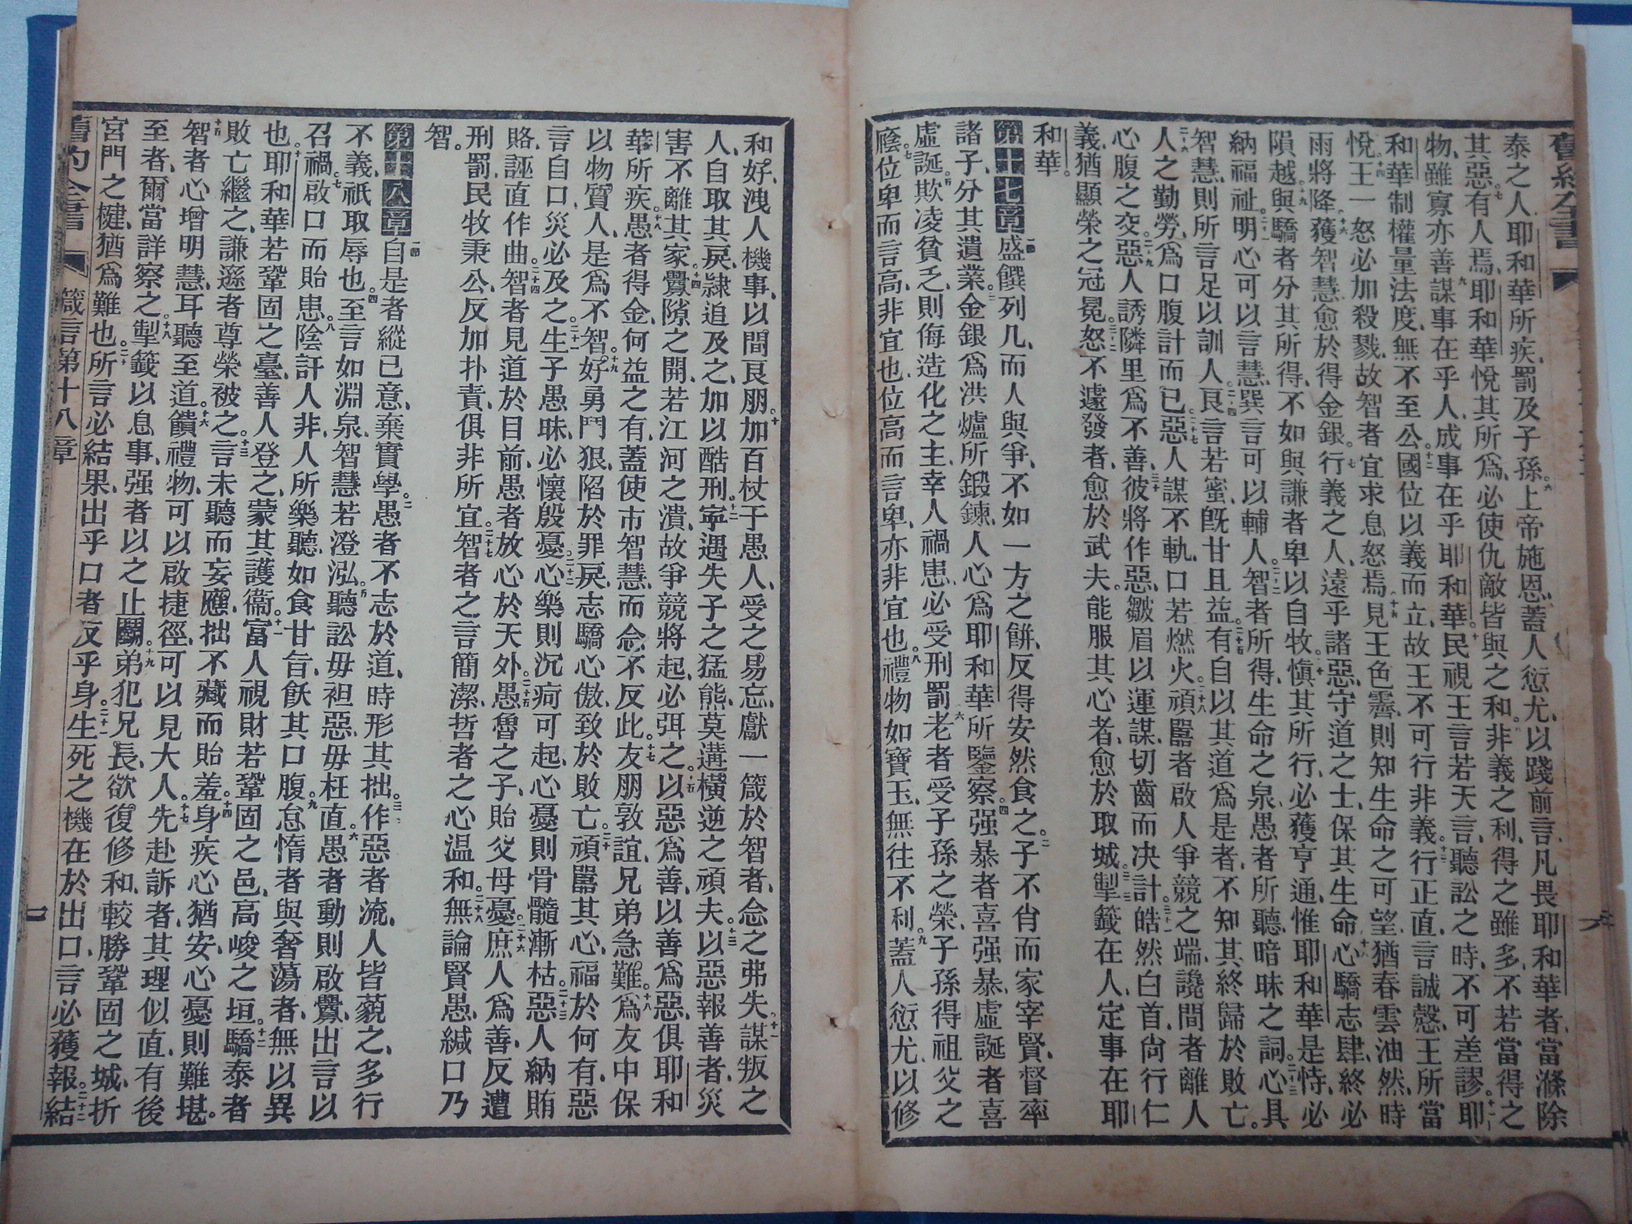 舊約全書
泰之人、耶和華所疾、罰及子孫。六上帝施恩、蓋人愆尤、以踐前言、凡畏耶和華者、當滌除
其惡。七有人焉、耶和華悅其所爲、必使仇敵皆與之和。八非義之利、得之雖多、不若當得之
物、雖寡亦善。九謀事在乎人、成事在乎耶和華。十民視王言若天言、聽訟之時、不可差謬。十一耶
和華制權量法度、無不至公。十二國位以義而立、故王不可行非義。十三行正直、言誠慤、王所當
悅。十四王一怒必加殺戮、故智者宜求息怒焉。十五見王色霽、則知生命之可望、猶春雲油然、時
雨將降。十六獲智慧愈於得金銀。十七行義之人、遠乎諸惡、守道之士、保其生命。十八心驕志肆、終必
隕越。十九與驕者分其所得、不如與謙者卑以自牧。二十愼其所行、必獲亨通、惟耶和華是恃、必
納福祉。二十一明心可以言慧、巽言可以輔人。二十二智者所得、生命之泉、愚者所聽、暗昧之詞。二十三心具
智慧、則所言足以訓人。二十四艮言若蜜、旣甘且益。二十五有自以其道爲是者、不知其終歸於敗亡。
二十六人之勤勞、爲口腹計而已。二十七惡人謀不軌、口若燃火。二十八頑嚚者啟人爭競之端、讒間者離人
心腹之交。二十九惡人誘隣里爲不善、彼將作惡、三十皺眉以運謀、切齒而决計。三十一皓然白首、尙行仁
義、猶顯榮之冠冕。三十二怒不遽發者、愈於武夫、能服其心者、愈於取城。三十三掣籤在人、定事在耶
和華。
第十七章 一節盛饌列几、而人與爭、不如一方之餅、反得安然食之。二子不肖而家宰賢、督率
諸子、分其遺業。三金銀爲洪爐所鍛鍊、人心爲耶和華所鑒察。四强暴者喜强暴、虛誕者喜
虛誕。五欺凌貧乏、則侮造化之主、幸人禍患、必受刑罰。六老者受子孫之榮、子孫得祖父之
廕。七位卑而言高、非宜也、位高而言卑、亦非宜也。八禮物如寶玉、無往不利。九蓋人愆尤、以修
和好、洩人機事、以間艮朋。十加百杖于愚人、受之易忘、獻一箴於智者、念之弗失。十一謀叛之
人、自取其戾、隸追及之、加以酷刑。十二寧遇失子之猛熊、莫遘橫逆之頑夫。十三以惡報善者、災
害不離其家。十四釁隙之開、若江河之潰、故爭競將起、必弭之。十五以惡爲善、以善爲惡、俱耶和
華所疾。十六愚者得金、何益之有、蓋使市智慧、而念不反此。十七友朋敦誼、兄弟急難。十八爲友中保、
以物質人、是爲不智。十九好勇鬥狠、陷於罪戾、志驕心傲、致於敗亡。二十頑嚚其心、福於何有、惡
言自口、災必及之。二十一生子愚昧、必懷殷憂。二十二心樂則沉疴可起、心憂則骨髓漸枯。二十三惡人納賄
賂、誣直作曲。二十四智者見道於目前、愚者放心於天外。二十五愚魯之子、貽父母憂。二十六庶人爲善、反遭
刑罰、民牧秉公、反加扑責、俱非所宜。二十七智者之言簡潔、哲者之心温和。二十八無論賢愚、緘口乃
智。
第十八章 一節自是者縱己意、棄實學。二愚者不志於道、時形其拙。三作惡者流、人皆藐之、多行
不義、祇取辱也。四至言如淵泉、智慧若澄泓。五聽訟毋袒惡、毋枉直。六愚者動則啟釁、出言以
召禍。七啟口而貽患。八陰訐人非、人所樂聽、如食甘旨、飫其口腹。九怠惰者與奢蕩者、無以異
也。十耶和華若鞏固之臺、善人登之、蒙其護衞。十一富人視財若鞏固之邑、高峻之垣。十二驕泰者
敗亡繼之、謙遜者尊榮被之。十三言未聽而妄應、拙不藏而貽羞。十四身疾心猶安、心憂則難堪。
十五智者心增明慧、耳聽至道。十六饋禮物、可以啟捷徑、可以見大人。十七先赴訴者、其理似直、有後
至者、爾當詳察之。十八掣籤以息事、强者以之止鬭。十九弟犯兄長、欲復修和、較勝鞏固之城、折
宮門之楗、猶爲難也。二十所言必結果、出乎口者反乎身。二十一生死之機、在於出口、言必獲報。二十二結
舊約全書 箴言第十八章